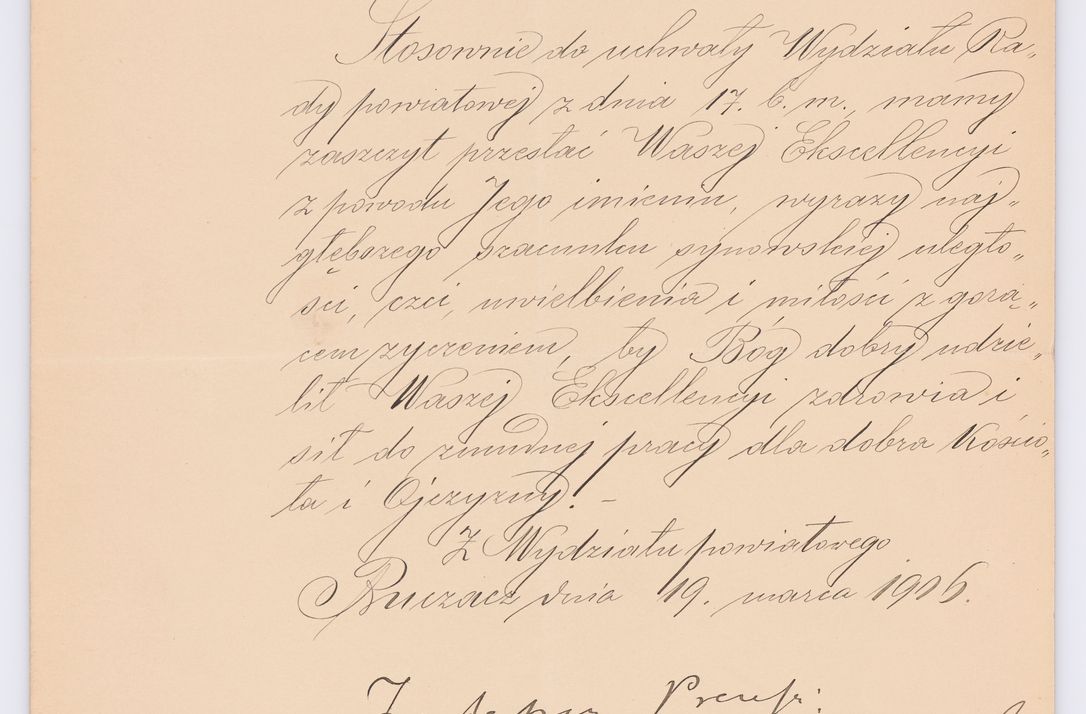 Stosownie do uchwały Wydziału Ra„
dy powiatowej z dnia 17. b. m., mamy
zaszczyt przesłać Waszej Ekscellencyi
z powodu Jego imienin, wyrazy naj„
głębszego szacunku synowskiej uległo„
ści, czci, uwielbienia i miłości z gorą„
cem życzeniem, by Bóg dobry udzie„
lił Waszej Ekscellencyi zdrowia i
sił do żmudnej pracy dla dobra Kościo„
ła i Ojczyzny. –
Z Wydziału powiatowego
Buczacz dnia 19. marca 1906.